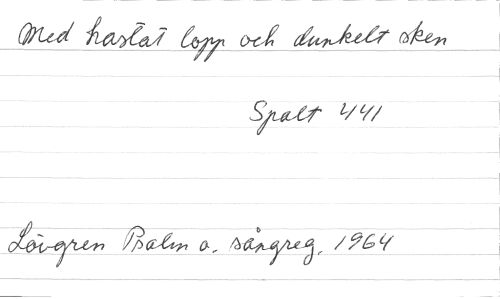 Med hastat lopp och dunkelt sken
Spalt 441
Lövgren Psalm o. sångreg. 1964